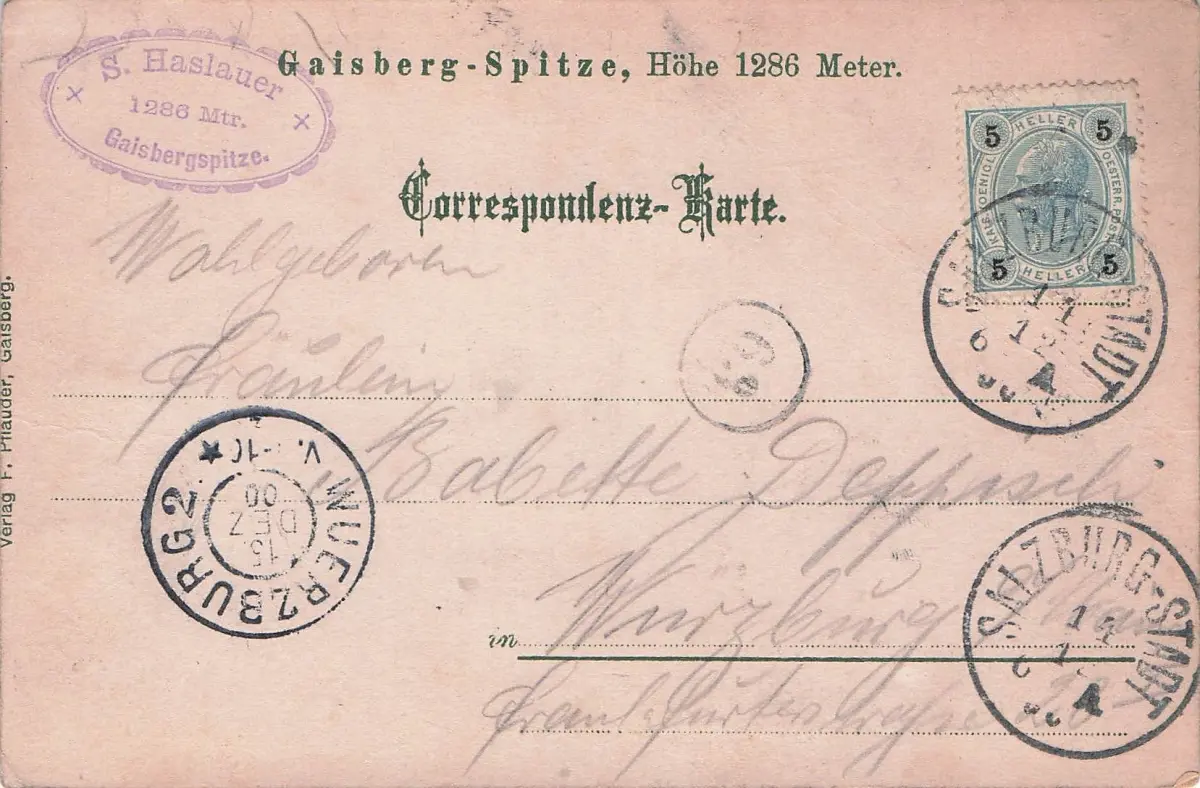 S. Haslauer
1286 Mtr.
Gaisbergspitze.
Gaisberg-Spitze, Höhe 1286 Meter.
5 HELLER 5
KAIS. KOENIGL. OESTERR. POST
5 HELLER 5
Correspondenz-Karte.
SALZBURG-STADT
11
6 A
Wohlgeboren
Fräulein
69
Babette Deppisch
in Würzburg
Frankfurterstrasse
WUERZBURG 2
15
DEZ
00
V.
SALZBURG-STADT
11
6 A
Verlag F. Pflauder, Gaisberg.